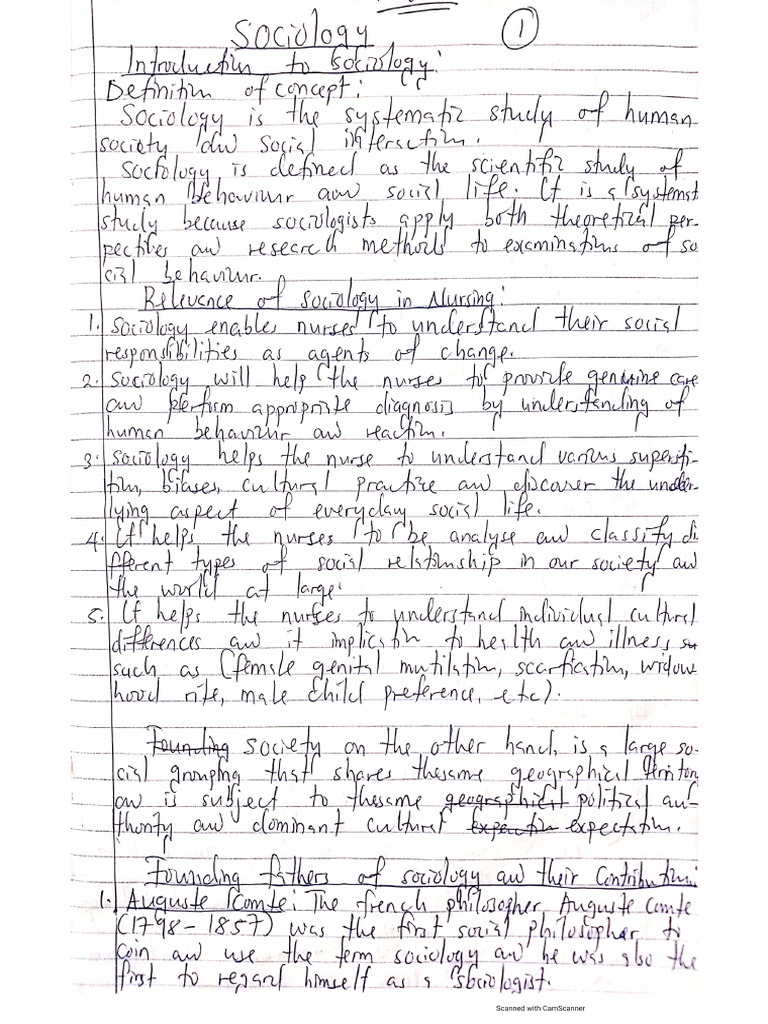 Sociology
1
Introduction to Sociology:
Definition of concept:
Sociology is the systematic study of human
society and social interaction.
Sociology is defined as the scientific study of
human behaviour and social life. It is a systemat
study because sociologists apply both theoretical per-
pectives and research methods to examinations of so
cial behaviour.
Relevance of sociology in Nursing:
1. Sociology enables nurses to understand their social
responsibilities as agents of change.
2. Sociology will help the nurses to provide genuine care
and perform appropriate diagnosis by understanding of
human behaviour and reaction.
3. Sociology helps the nurse to understand various supersti-
tion, biases, cultural practice and discover the under-
lying aspect of everyday social life.
4. It helps the nurses to be analyse and classify di
fferent types of social relationship in our society and
the world at large.
5. It helps the nurses to understand individual cultural
differences and it implication to health and illness
such as (female genital mutilation, scarfication, widow
hood rite, male child preference, etc).
Founding society on the other hand, is a large so-
cial grouping that shares thesame geographical territory
and is subject to thesame geographical political au-
thority and dominant cultural expectation.
Founding fathers of sociology and their Contribution:
1. Auguste Comte: The french philosopher Auguste Comte
(1798-1857) was the first social philosopher to
coin and use the term sociology and he was also the
first to regard himself as a sociologist.
Scanned with CamScanner